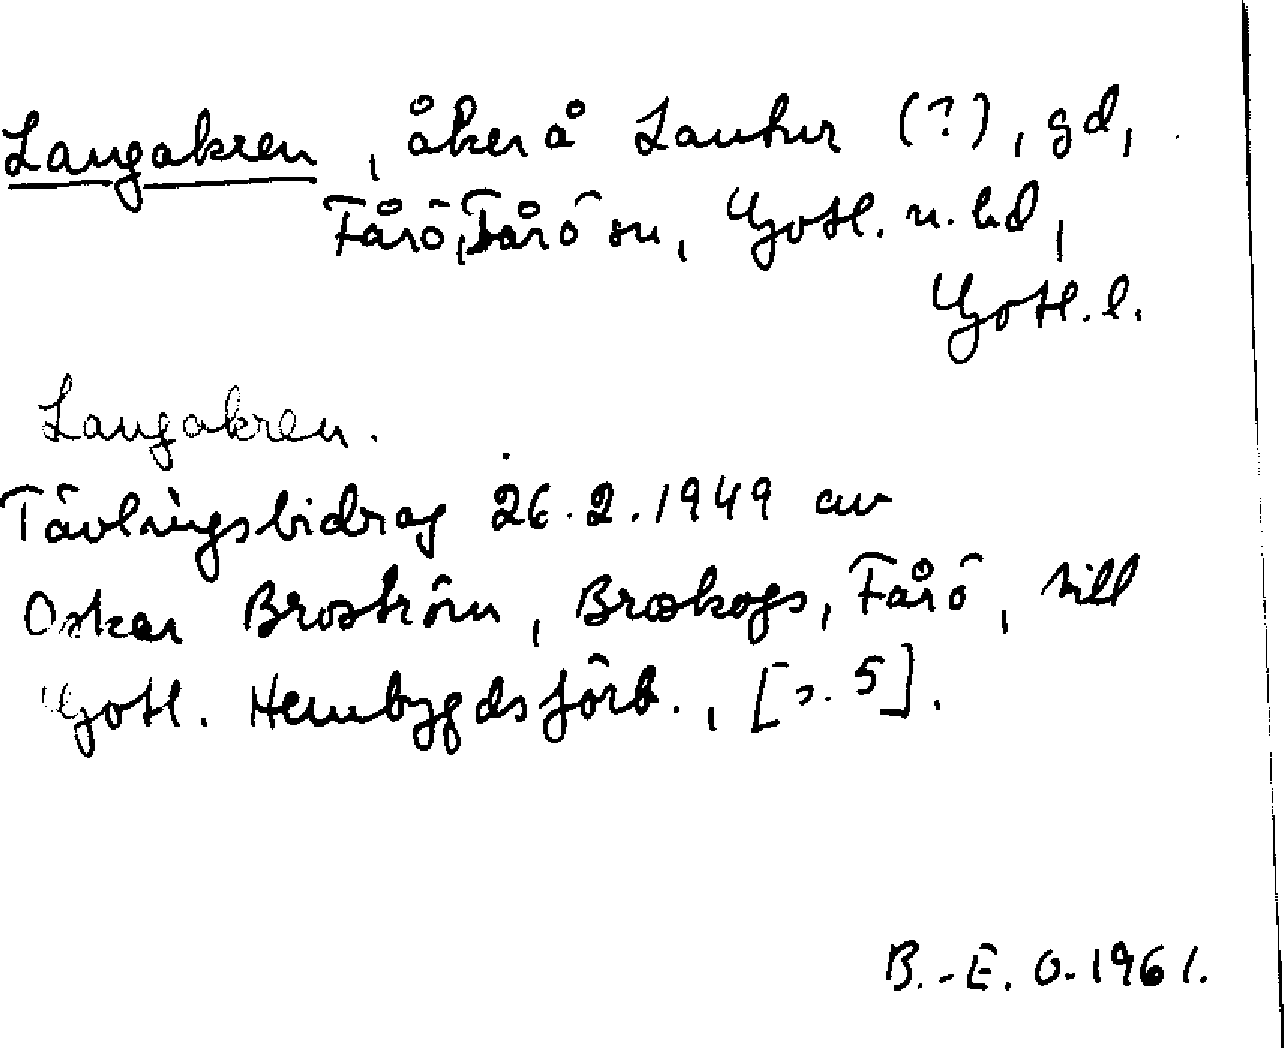 Langakren, åker å Lauhur (?), gd,
Fårö, Fårö sn, Gotl. n. hd,
Gotl. l.
Langakren.
Tävlingsbidrag 26.2.1949 av
Oskar Broström, Broskogs, Fårö, till
Gotl. Hembygdsförb., [s. 5].
B.-E. O. 1961.